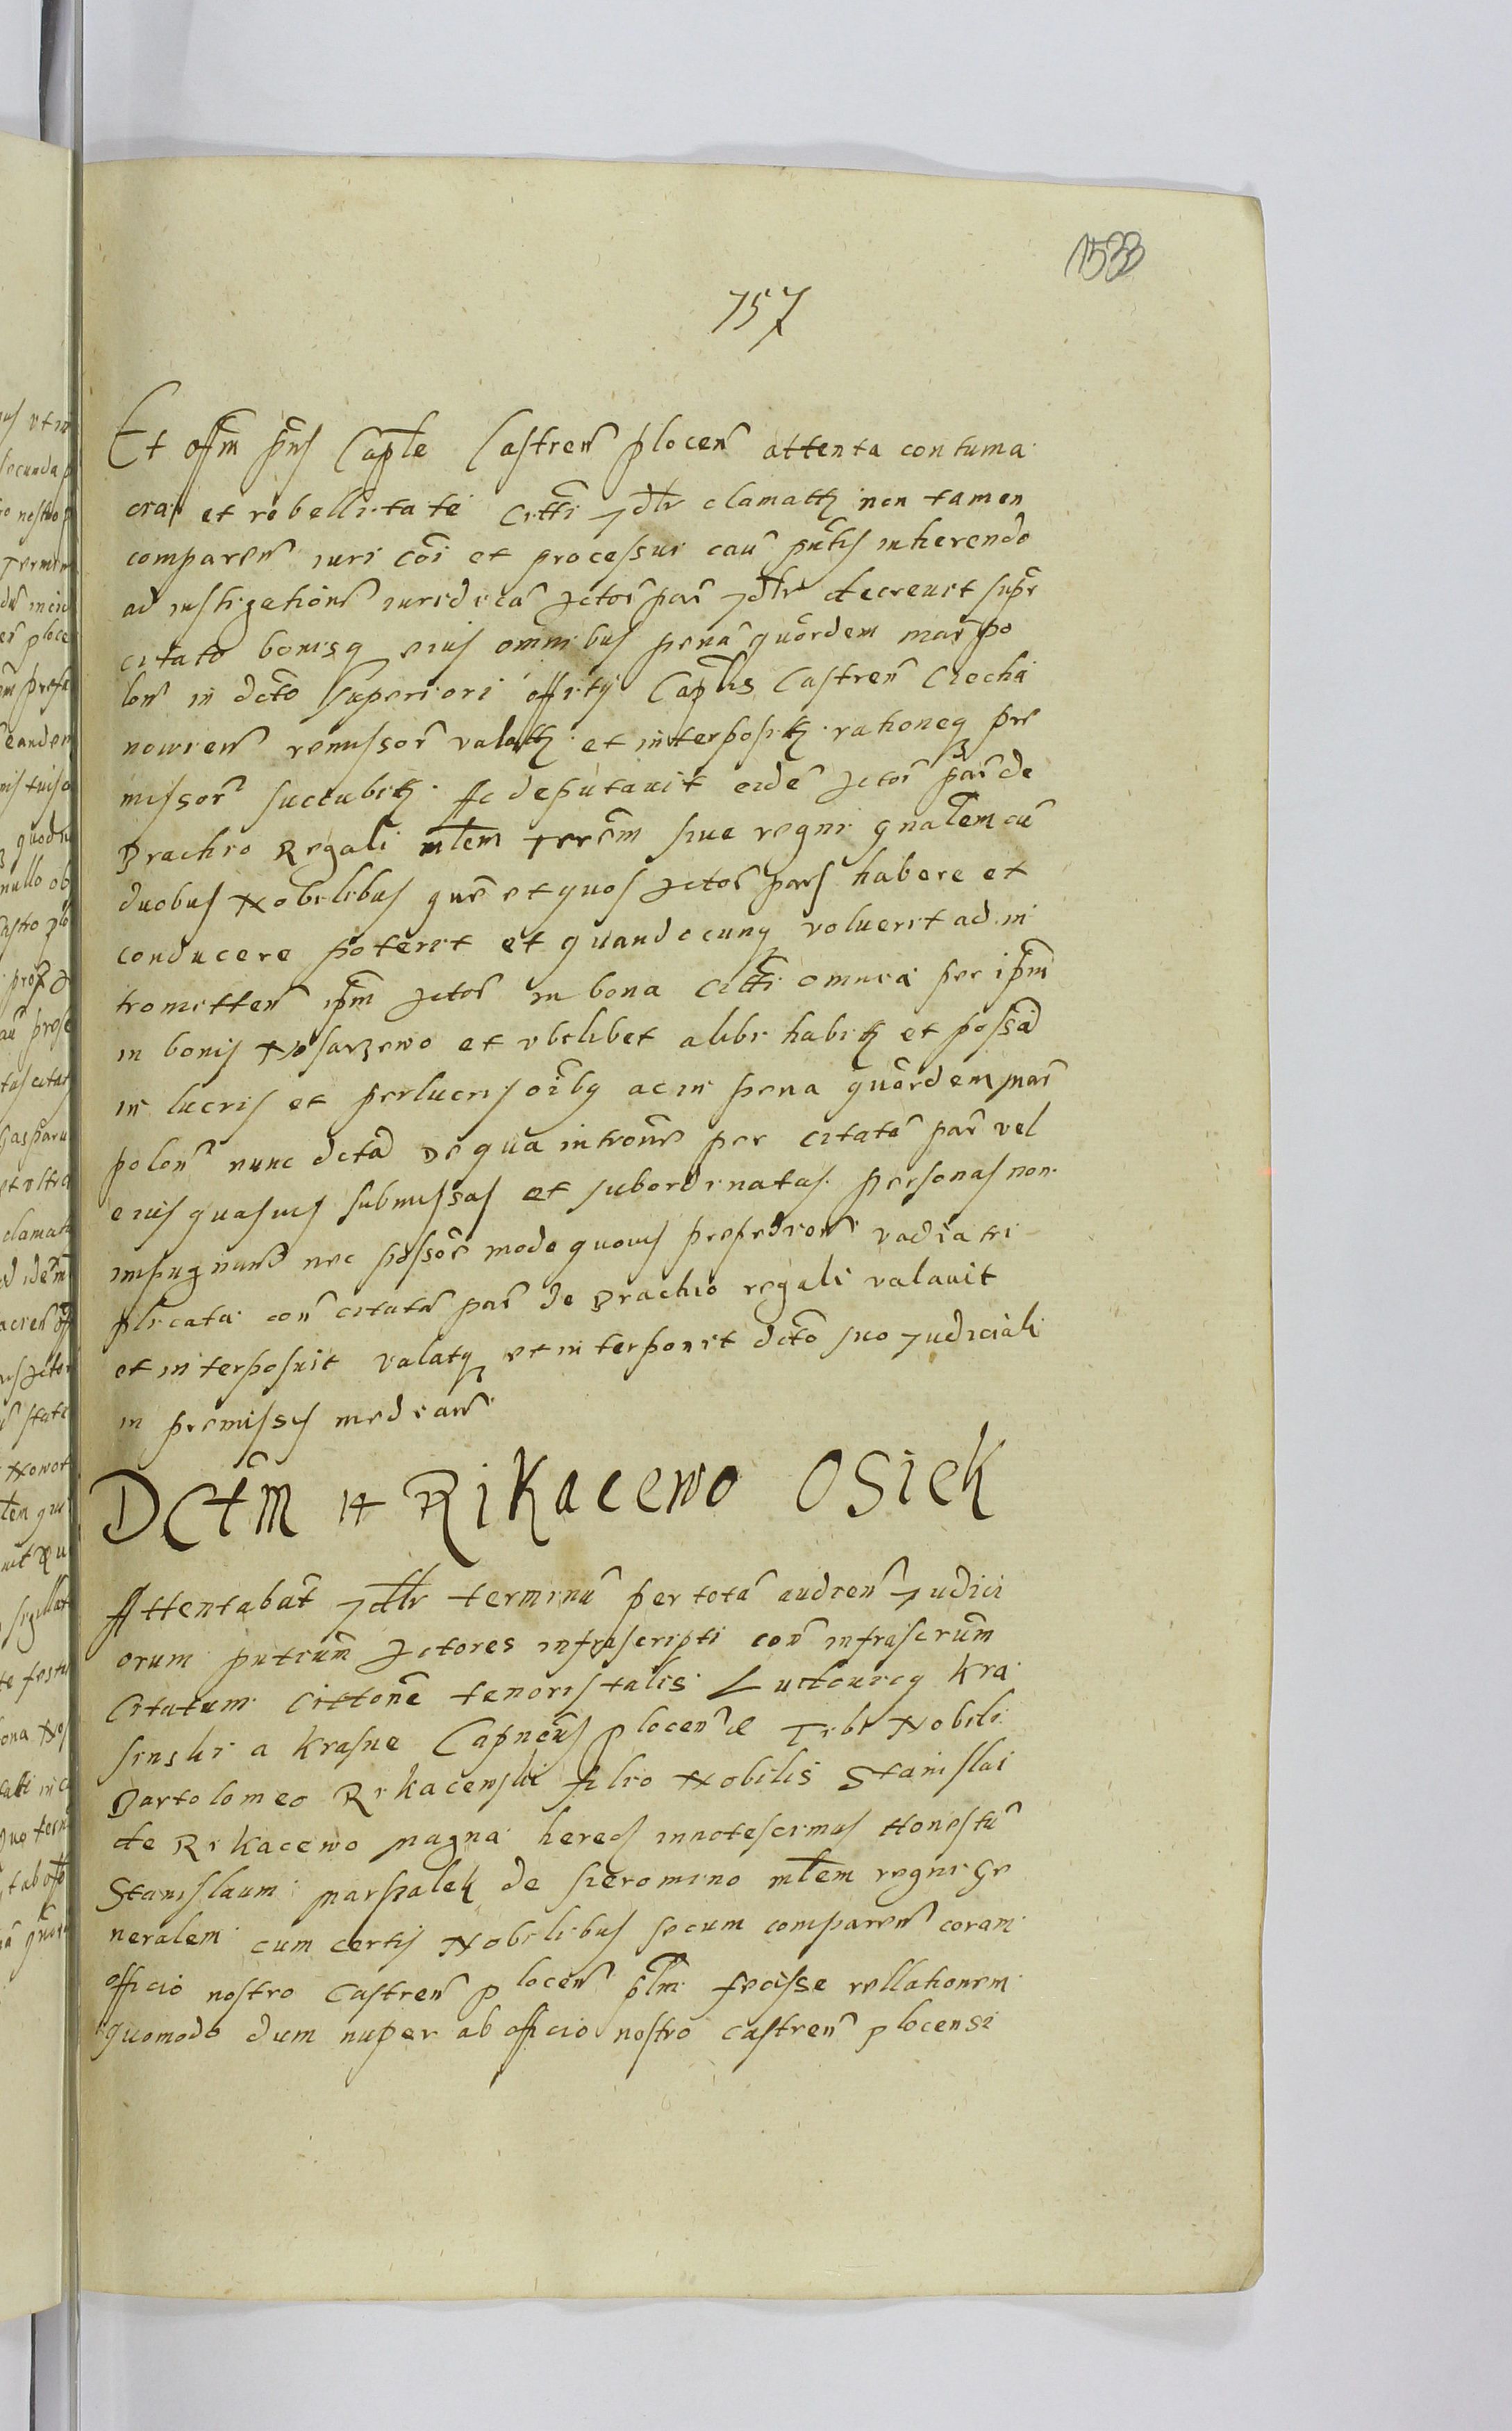 1533
757
Et offm pns Caple Castren plocen attenta contuma
cia et rebellitate citti Jdtr clamati non tamen
comparen iuri coi et processui cau pntis inherendo
ad instigationem iuridica Actor par Jdtr decrevit supr
citato bonisq eius omnibus pena quordem mar po
lon in dcto superiori officy Caplis Castren Ciecha
novien remissor valati et interpositi rationeq pre
missor succubiti. Ac deputavit eide Actor par de
Brachio Regali mtem terrem sive regni gnalem cu
duobus Nobilibus que et quos Actor pars habere et
conducere poterit et quandocunq voluerit ad in
tromitten ipm Actor in bona citti omnia per ipm
in bonis Nosarzewo et ubilibet alibi habiti et possid
in lucris et perlucris oibq ac in pena quordem mar
polon nunc dcta De qua intromis per citatu par vel
eius quasvis submissas et subordinatas personas non
impugnand nec possor modo quovis prepedien vadia tri
plicata con citatu par de Brachio regali valavit
et interposuit valatq et interponit dcto suo Judiciali
in premissis median
DCtm It RiKacewo OSieK
Attentabat Jdtr terminu per tota audien Judici
orum putrum Actores infrascripti con infrascrum
Citatum Cittone tenoris talis Ludovicq Kra
sinski a Krasne Capneus plocen &c Tibi Nobili
Bartolomeo Rikacewski filio Nobilis Stanislai
de Rikacewo magna heredis innotescimus Honestu
Stanislaum Marszalek de sieromino mtem regni Ge
neralem cum certis Nobilibus secum comparen coram
officio nostro Castren plocen plm fecisse rellationem
quomodo dum nuper ab officio nostro castren plocensi